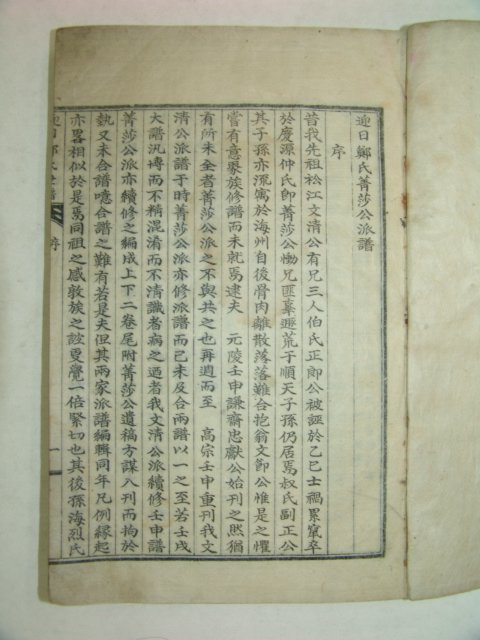 迎日鄭氏菁莎公派譜
序
昔我先祖松江文清公有兄三人伯氏正郎公被誣於乙巳士禍累竄卒
於慶源仲氏卽菁莎公慟兄匪辜遯荒于順天子孫仍居焉叔氏副正公
其子孫亦流寓於海州自後骨肉離散落落難合抱翁文節公惟是之懼
嘗有意聚族修譜而未就焉逮夫 元陵壬申謙齋忠獻公始刊之然猶
有所未全者菁莎公派之不與共之也再週而至 高宗壬申重刊我文
清公派譜于時菁莎公派亦修派譜而已未及合兩譜以一之至若壬戌
大譜汎博而不精混淆而不清識者病之迺者我文清公派續修壬申譜
菁莎公派亦續修之編成上下二卷尾附菁莎公遺稿方謀入刊而拘於
埶又未合譜噫合譜之難有若是夫但其兩家派譜編輯同年凡例緣起
亦畧相似於是焉同祖之感敦族之誼更覺一倍緊切也其後孫海烈氏
迎日鄭氏 譜
序
一